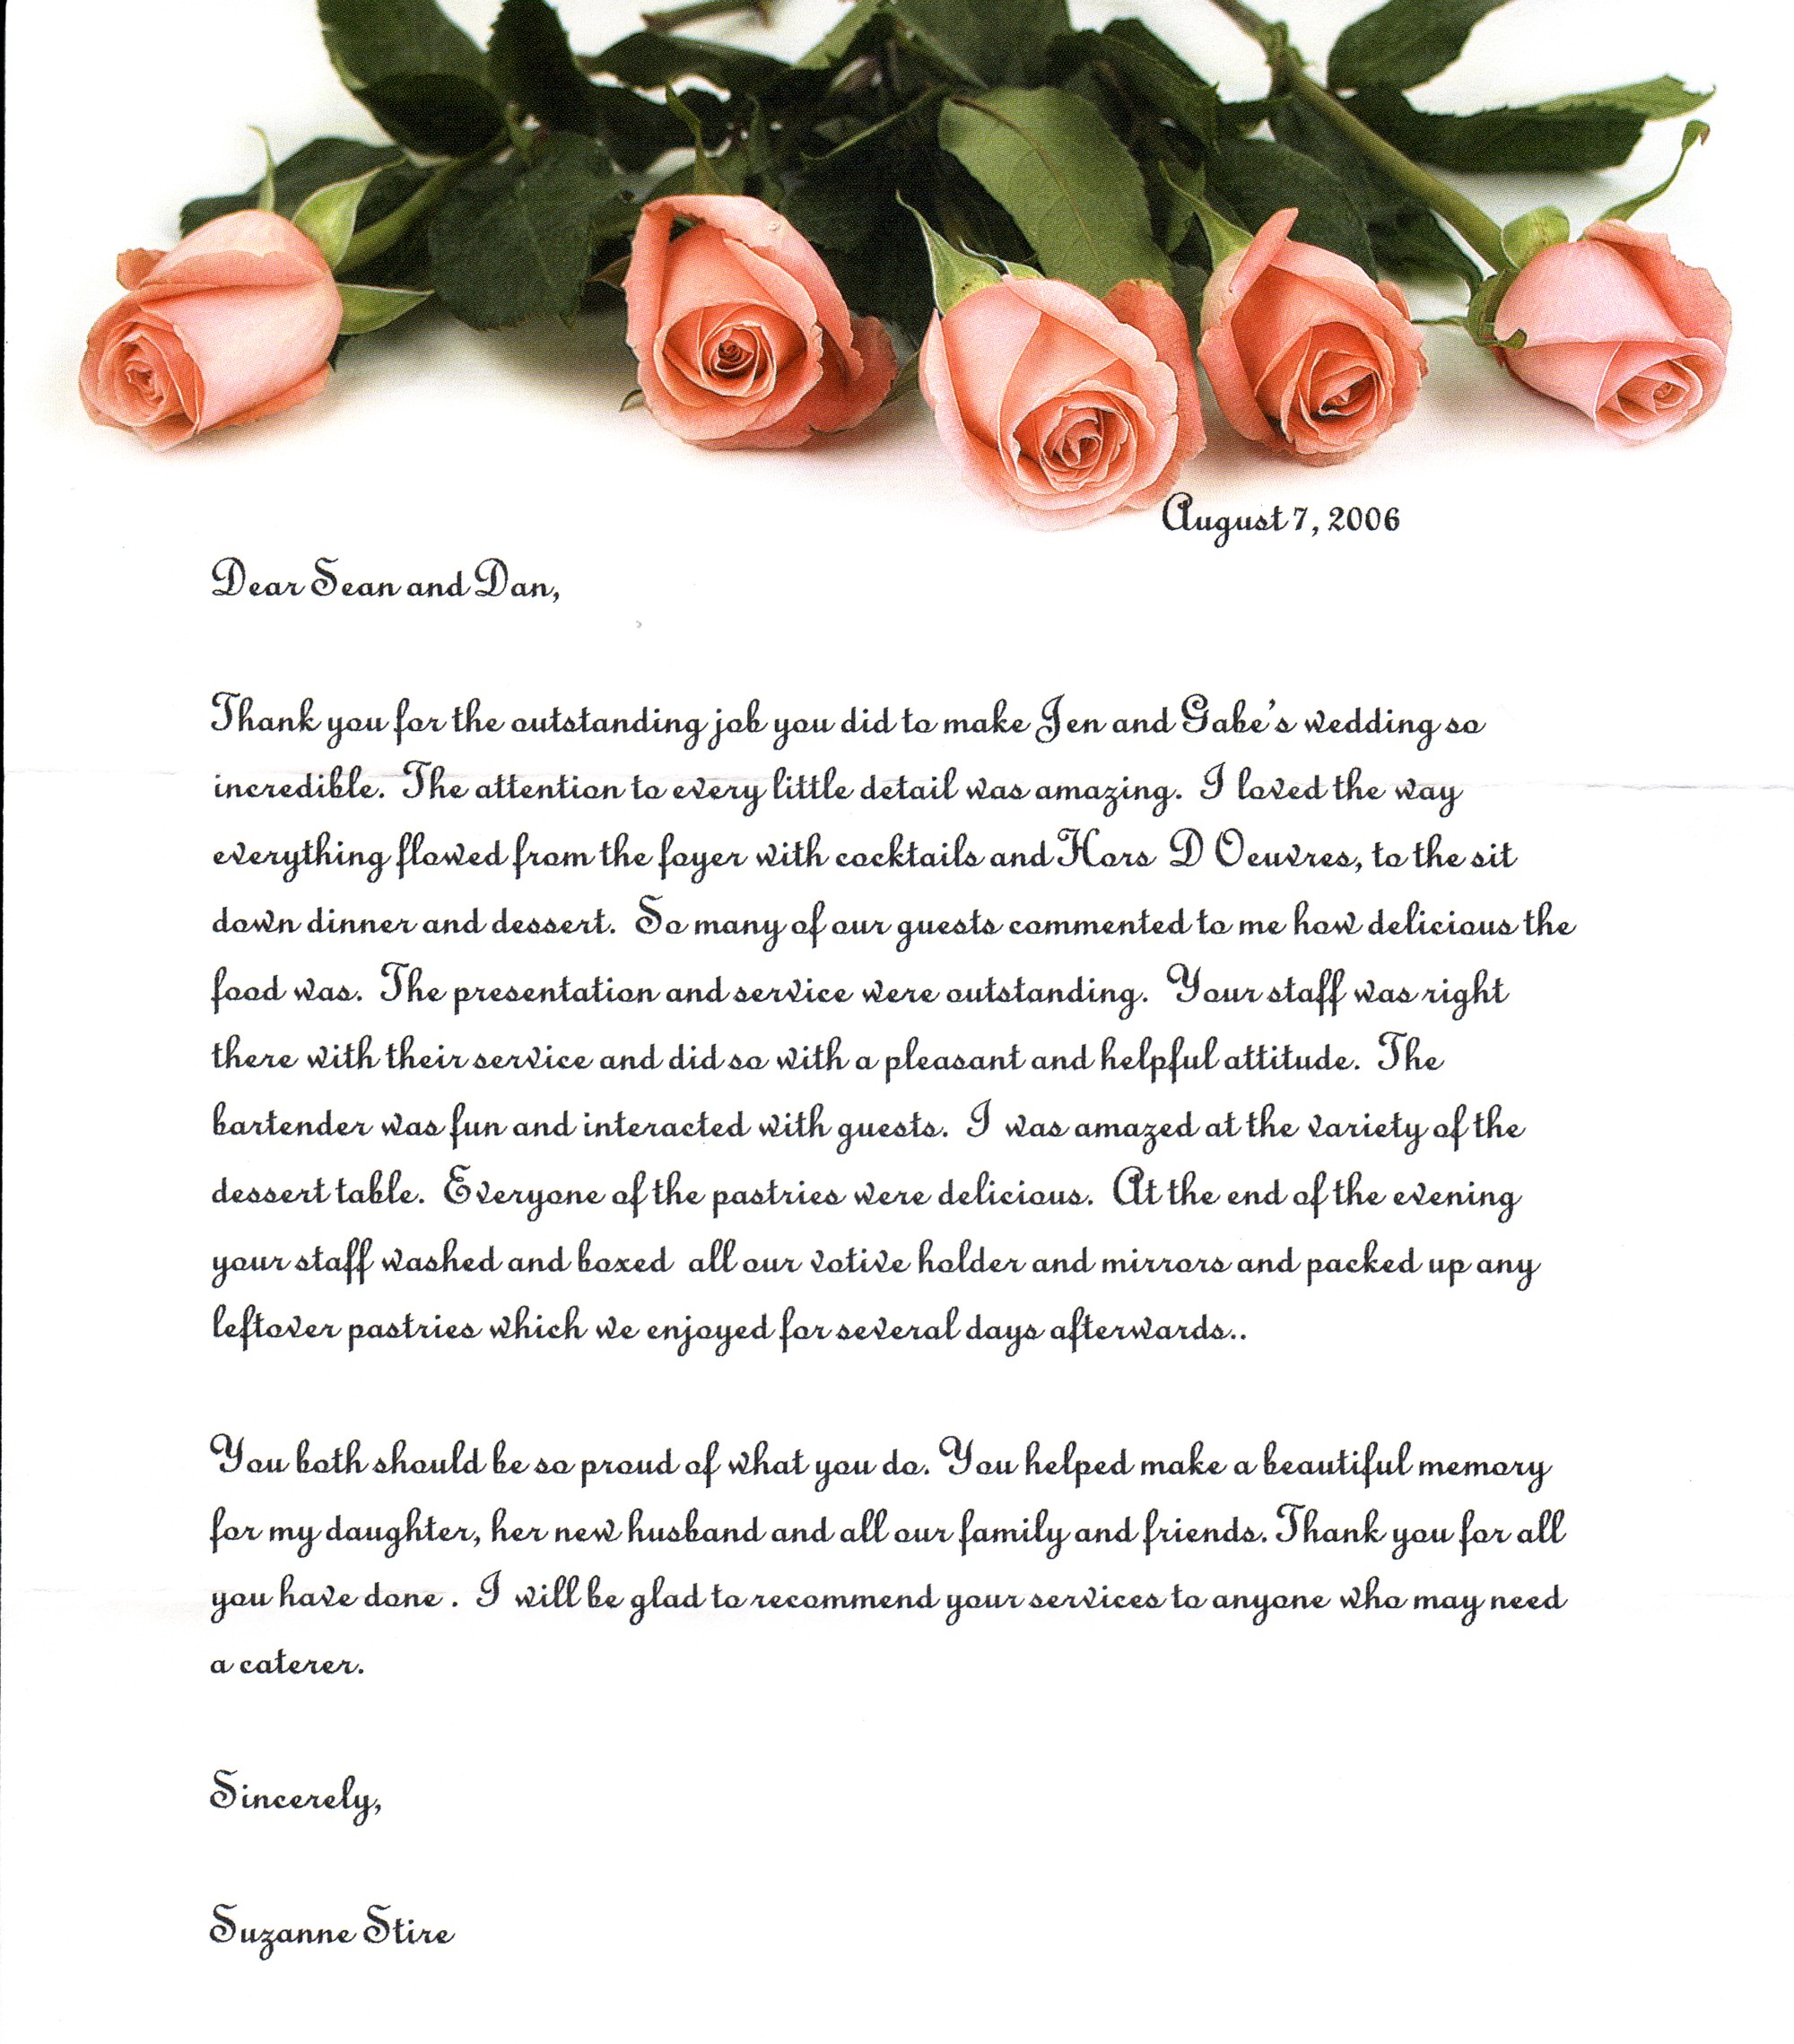 August 7, 2006
Dear Sean and Dan,
Thank you for the outstanding job you did to make Jen and Gabe's wedding so
incredible. The attention to every little detail was amazing. I loved the way
everything flowed from the foyer with cocktails and Hors D Oeuvres, to the sit
down dinner and dessert. So many of our guests commented to me how delicious the
food was. The presentation and service were outstanding. Your staff was right
there with their service and did so with a pleasant and helpful attitude. The
bartender was fun and interacted with guests. I was amazed at the variety of the
dessert table. Everyone of the pastries were delicious. At the end of the evening
your staff washed and boxed all our votive holder and mirrors and packed up any
leftover pastries which we enjoyed for several days afterwards..
You both should be so proud of what you do. You helped make a beautiful memory
for my daughter, her new husband and all our family and friends. Thank you for all
you have done . I will be glad to recommend your services to anyone who may need
a caterer.
Sincerely,
Suzanne Stire